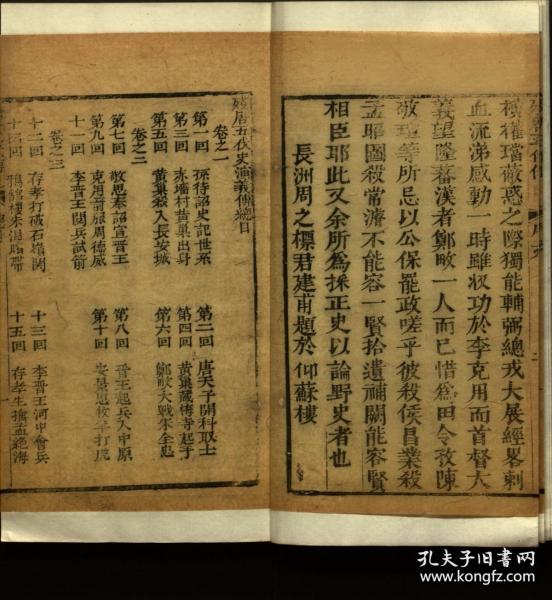 横權璫敵惑之際獨能輔弼總戎大展經畧刺
血流涕感動一時雖收功於李克用而首督大
義望隆蕃漢者鄭畋一人而已惜爲田令孜陳
敬瑄等所忌以公保罷政嗟乎彼殺侯昌業殺
孟昭圖殺常濬不能容一賢拾遺補闕能容賢
相臣耶此又余所爲採正史以論野史者也
長洲周之標君建甫題於仰蘇樓
殘唐五代史演義傳總目
卷之一
第一回 孫待詔史記世系 第二回 唐天子開科取士
第三回 赤墻村黃巢出身 第四回 黃巢藏梅寺起手
第五回 黃巢殺入長安城 第六回 鄭畋大戰朱全忠
卷之二
第七回 敬思奉詔宣晋王 第八回 晋王起兵入中原
第九回 克用前服周德威 第十回 安景思牧羊打虎
十一回 李晋王閱兵試箭
卷之三
十二回 存孝打破石嶺関 十三回 李晋王河中會兵
十四回 鴉館樓朱溫賭帶 十五回 存孝生擒孟絕海
孔夫子旧书网
www.kongfz.com